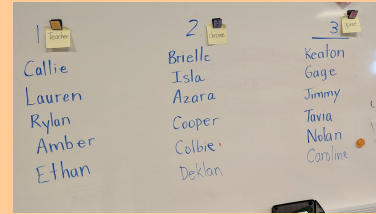 1 Teacher
Callie
Lauren
Rylan
Amber
Ethan
2
Brielle
Isla
Azara
Cooper
Colbie
Deklan
3
Keaton
Gage
Jimmy
Tavia
Nolan
Caroline